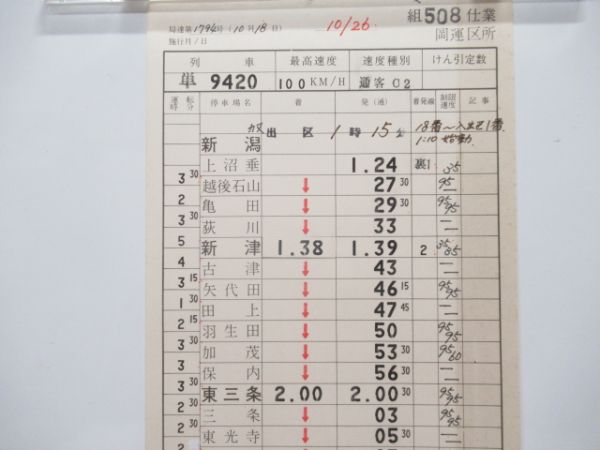 組508仕業
局達第1794号(10月18日) 10/26. 岡運区所
施行月/日
列車 最高速度 速度種別 けん引定数
単9420 100KM/H 通客C2
運転時分 停車場名 着 発(通) 着発線 制限速度 記事
新潟 出区 1時15分 18番〜入出区1番
1:10 始動
上沼垂 1.24 裏1 35
3 30 越後石山 ↓ 27 30 95
2 亀田 ↓ 29 30 95 95
3 30 荻川 ↓ 33
5 新津 1.38 1.39 2 35 85
4 古津 ↓ 43
3 15 矢代田 ↓ 46 15 95 95
1 30 田上 ↓ 47 45
2 15 羽生田 ↓ 50 95 95
3 30 加茂 ↓ 53 30 95 60
3 保内 ↓ 56 30
3 30 東三条 2.00 2.00 30 95 95
2 30 三条 ↓ 03 95 95
2 30 東光寺 ↓ 05 30